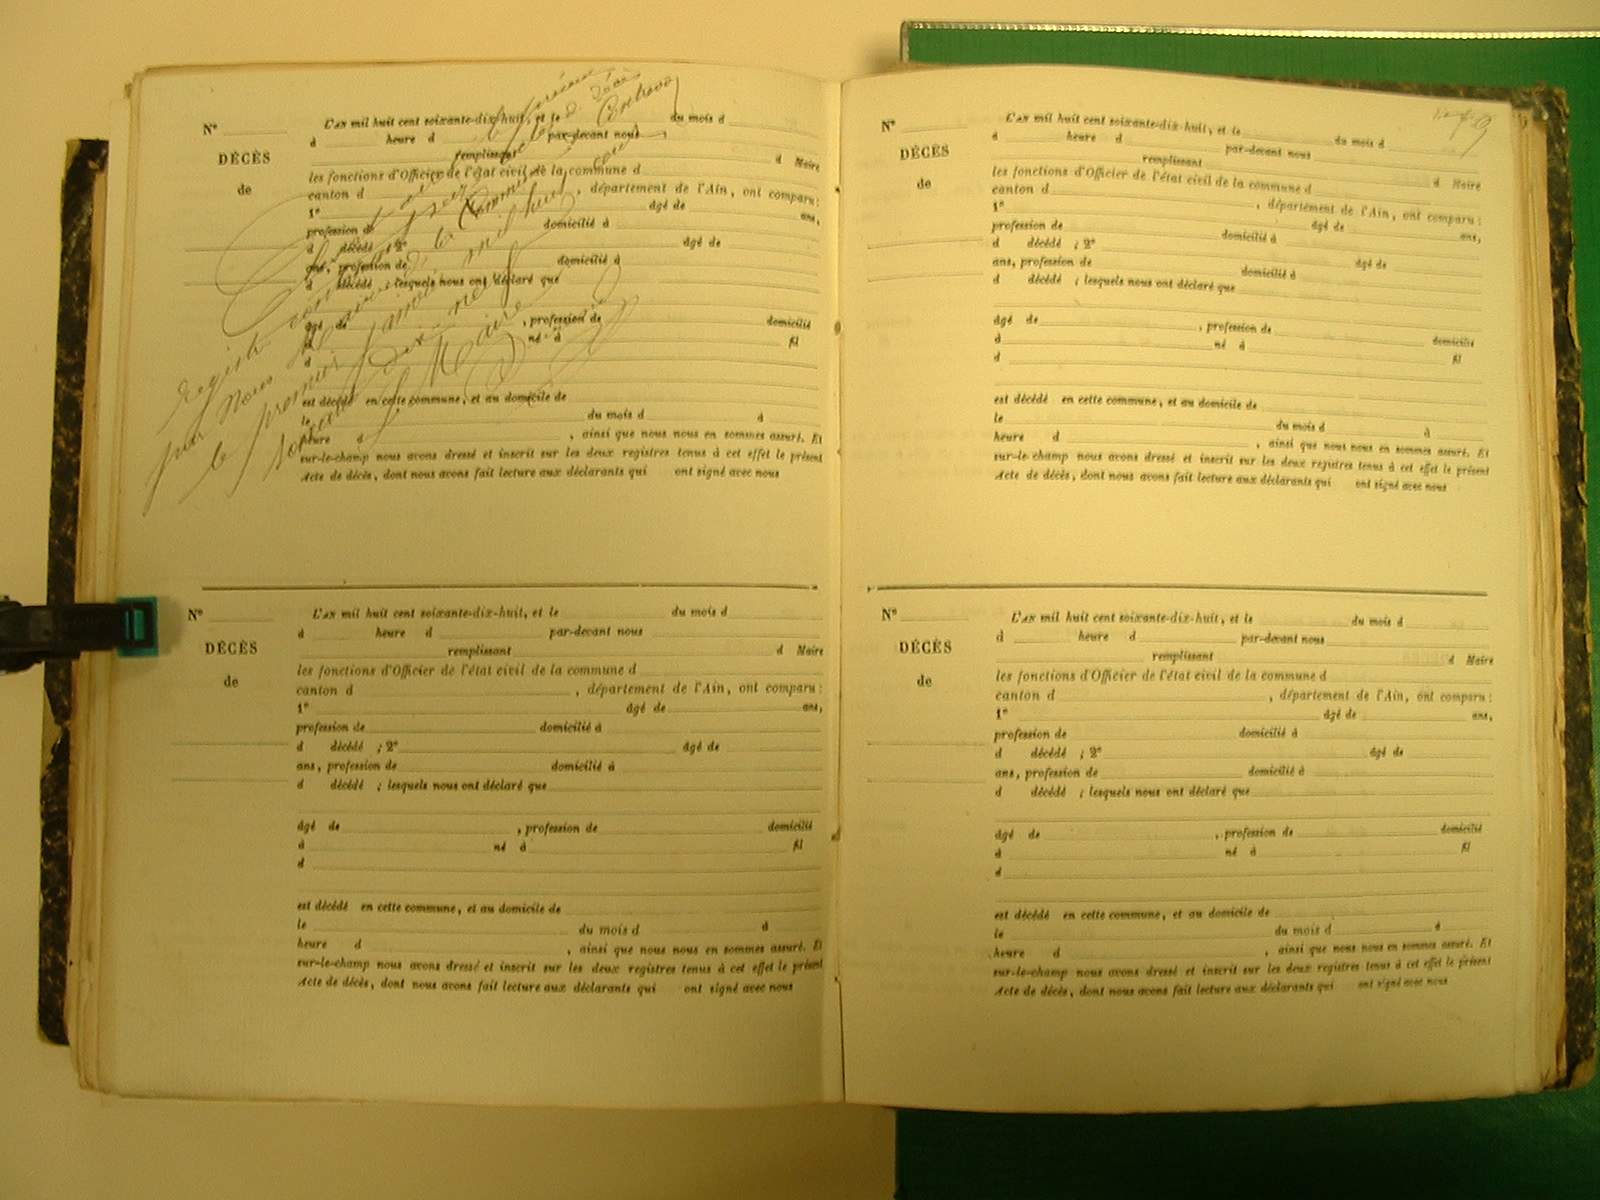 Nº
DÉCÈS
de
L'an mil huit cent soixante-dix-huit, et le du mois d
à heure d par-devant nous
remplissant d Maire
les fonctions d'Officier de l'état civil de la commune d
canton d , département de l'Ain, ont comparu :
1º âgé de ans,
profession de domicilié à
d décédé ; 2º âgé de
ans, profession de domicilié à
d décédé ; lesquels nous ont déclaré que
âgé de , profession de domicilié
à né à fil
d
est décédé en cette commune, et au domicile de
le du mois d à
heure d , ainsi que nous nous en sommes assuré. Et
sur-le-champ nous avons dressé et inscrit sur les deux registres tenus à cet effet le présent
Acte de décès, dont nous avons fait lecture aux déclarants qui ont signé avec nous
Clos et arrêté le présent
registre contenant actes de décès
par Nous Maire de la Commune de
le premier janvier mil huit cent
soixante dix-neuf
Le Maire
Nº
DÉCÈS
de
L'an mil huit cent soixante-dix-huit, et le du mois d
à heure d par-devant nous
remplissant d Maire
les fonctions d'Officier de l'état civil de la commune d
canton d , département de l'Ain, ont comparu :
1º âgé de ans,
profession de domicilié à
d décédé ; 2º âgé de
ans, profession de domicilié à
d décédé ; lesquels nous ont déclaré que
âgé de , profession de domicilié
à né à fil
d
est décédé en cette commune, et au domicile de
le du mois d à
heure d , ainsi que nous nous en sommes assuré. Et
sur-le-champ nous avons dressé et inscrit sur les deux registres tenus à cet effet le présent
Acte de décès, dont nous avons fait lecture aux déclarants qui ont signé avec nous
Nº
DÉCÈS
de
L'an mil huit cent soixante-dix-huit, et le du mois d
à heure d par-devant nous
remplissant d Maire
les fonctions d'Officier de l'état civil de la commune d
canton d , département de l'Ain, ont comparu :
1º âgé de ans,
profession de domicilié à
d décédé ; 2º âgé de
ans, profession de domicilié à
d décédé ; lesquels nous ont déclaré que
âgé de , profession de domicilié
à né à fil
d
est décédé en cette commune, et au domicile de
le du mois d à
heure d , ainsi que nous nous en sommes assuré. Et
sur-le-champ nous avons dressé et inscrit sur les deux registres tenus à cet effet le présent
Acte de décès, dont nous avons fait lecture aux déclarants qui ont signé avec nous
Nº
DÉCÈS
de
L'an mil huit cent soixante-dix-huit, et le du mois d
à heure d par-devant nous
remplissant d Maire
les fonctions d'Officier de l'état civil de la commune d
canton d , département de l'Ain, ont comparu :
1º âgé de ans,
profession de domicilié à
d décédé ; 2º âgé de
ans, profession de domicilié à
d décédé ; lesquels nous ont déclaré que
âgé de , profession de domicilié
à né à fil
d
est décédé en cette commune, et au domicile de
le du mois d à
heure d , ainsi que nous nous en sommes assuré. Et
sur-le-champ nous avons dressé et inscrit sur les deux registres tenus à cet effet le présent
Acte de décès, dont nous avons fait lecture aux déclarants qui ont signé avec nous